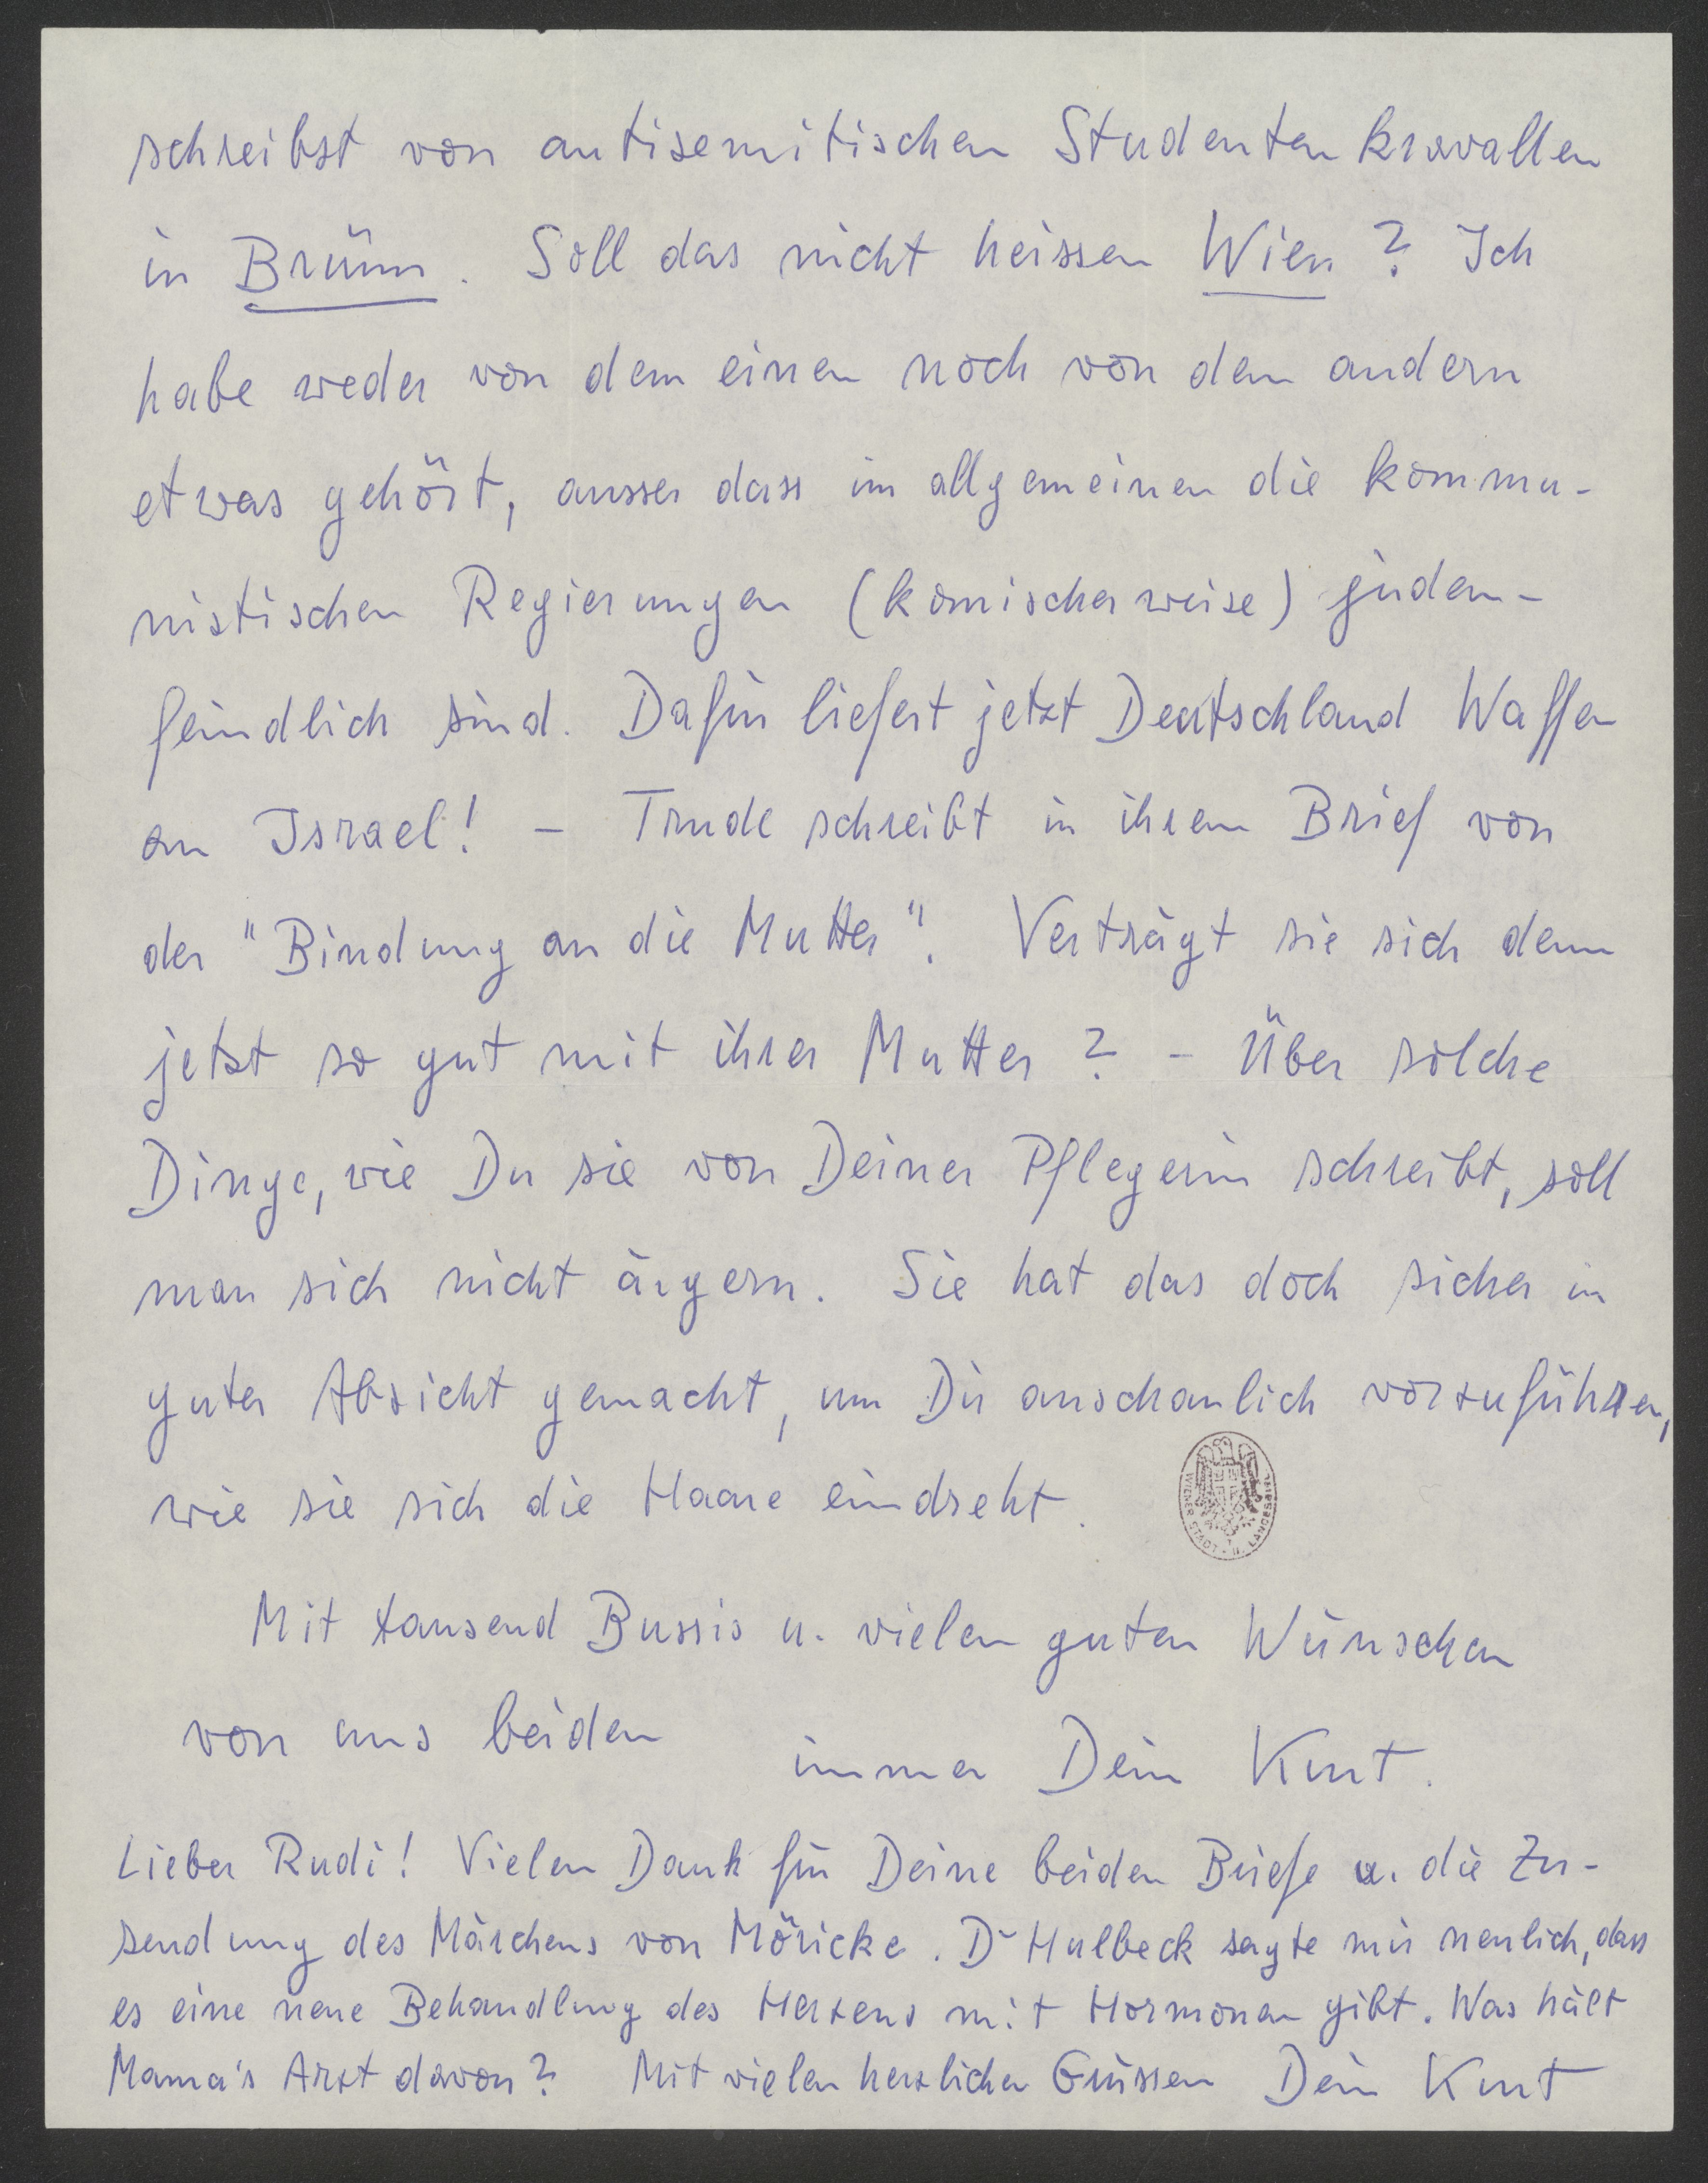 schreibst von antisemitischen Studentenkravallen
in Brünn. Soll das nicht heissen Wien? Ich
habe weder von dem einen noch von dem andern
etwas gehört, ausser dass im allgemeinen die kommu-
nistischen Regierungen (komischerweise) juden-
feindlich sind. Dafür liefert jetzt Deutschland Waffen
an Israel! – Trude schreibt in ihrem Brief von
der "Bindung an die Mutter". Verträgt sie sich denn
jetzt so gut mit ihrer Mutter? – Über solche
Dinge, wie Du sie von Deiner Pflegerin schreibt, soll
man sich nicht ärgern. Sie hat das doch sicher in
guter Absicht gemacht, um Dir anschaulich vorzuführen,
wie sie sich die Haare eindreht.
WIENER STADT- U. LANDESBIBL.
Mit tausend Bussis u. vielen guten Wünschen
von uns beiden immer Dein Kurt.
Lieber Rudi! Vielen Dank für Deine beiden Briefe u. die Zu-
sendung des Märchens von Möricke. Dr Hulbeck sagte mir neulich, dass
es eine neue Behandlung des Herzens mit Hormonen gibt. Was hält
Mama's Arzt davon? Mit vielen herzlichen Grüssen Dein Kurt